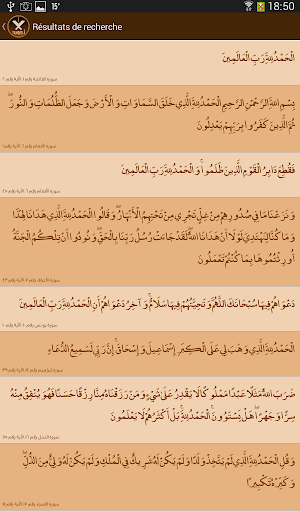 18:50
Résultats de recherche
الْحَمْدُ لِلَّهِ رَبِّ الْعَالَمِينَ
سورة الفاتحة رقم ١ الآية رقم ٢
بِسْمِ اللَّهِ الرَّحْمَنِ الرَّحِيمِ الْحَمْدُ لِلَّهِ الَّذِي خَلَقَ السَّمَاوَاتِ وَالْأَرْضَ وَجَعَلَ الظُّلُمَاتِ وَالنُّورَ ۖ
ثُمَّ الَّذِينَ كَفَرُوا بِرَبِّهِمْ يَعْدِلُونَ
سورة الأنعام رقم ٦ الآية رقم ١
فَقُطِعَ دَابِرُ الْقَوْمِ الَّذِينَ ظَلَمُوا ۚ وَالْحَمْدُ لِلَّهِ رَبِّ الْعَالَمِينَ
سورة الأنعام رقم ٦ الآية رقم ٤٥
وَنَزَعْنَا مَا فِي صُدُورِهِمْ مِنْ غِلٍّ تَجْرِي مِنْ تَحْتِهِمُ الْأَنْهَارُ ۖ وَقَالُوا الْحَمْدُ لِلَّهِ الَّذِي هَدَانَا لِهَذَا
وَمَا كُنَّا لِنَهْتَدِيَ لَوْلَا أَنْ هَدَانَا اللَّهُ ۖ لَقَدْ جَاءَتْ رُسُلُ رَبِّنَا بِالْحَقِّ ۖ وَنُودُوا أَنْ تِلْكُمُ الْجَنَّةُ
أُورِثْتُمُوهَا بِمَا كُنْتُمْ تَعْمَلُونَ
سورة الأعراف رقم ٧ الآية رقم ٤٣
دَعْوَاهُمْ فِيهَا سُبْحَانَكَ اللَّهُمَّ وَتَحِيَّتُهُمْ فِيهَا سَلَامٌ ۚ وَآخِرُ دَعْوَاهُمْ أَنِ الْحَمْدُ لِلَّهِ رَبِّ الْعَالَمِينَ
سورة يونس رقم ١٠ الآية رقم ١٠
الْحَمْدُ لِلَّهِ الَّذِي وَهَبَ لِي عَلَى الْكِبَرِ إِسْمَاعِيلَ وَإِسْحَاقَ ۚ إِنَّ رَبِّي لَسَمِيعُ الدُّعَاءِ
سورة إبراهيم رقم ١٤ الآية رقم ٣٩
ضَرَبَ اللَّهُ مَثَلًا عَبْدًا مَمْلُوكًا لَا يَقْدِرُ عَلَى شَيْءٍ وَمَنْ رَزَقْنَاهُ مِنَّا رِزْقًا حَسَنًا فَهُوَ يُنْفِقُ مِنْهُ
سِرًّا وَجَهْرًا ۖ هَلْ يَسْتَوُونَ ۚ الْحَمْدُ لِلَّهِ ۚ بَلْ أَكْثَرُهُمْ لَا يَعْلَمُونَ
سورة النحل رقم ١٦ الآية رقم ٧٥
وَقُلِ الْحَمْدُ لِلَّهِ الَّذِي لَمْ يَتَّخِذْ وَلَدًا وَلَمْ يَكُنْ لَهُ شَرِيكٌ فِي الْمُلْكِ وَلَمْ يَكُنْ لَهُ وَلِيٌّ مِنَ الذُّلِّ ۖ
وَكَبِّرْهُ تَكْبِيرًا
سورة الإسراء رقم ١٧ الآية رقم ١١١